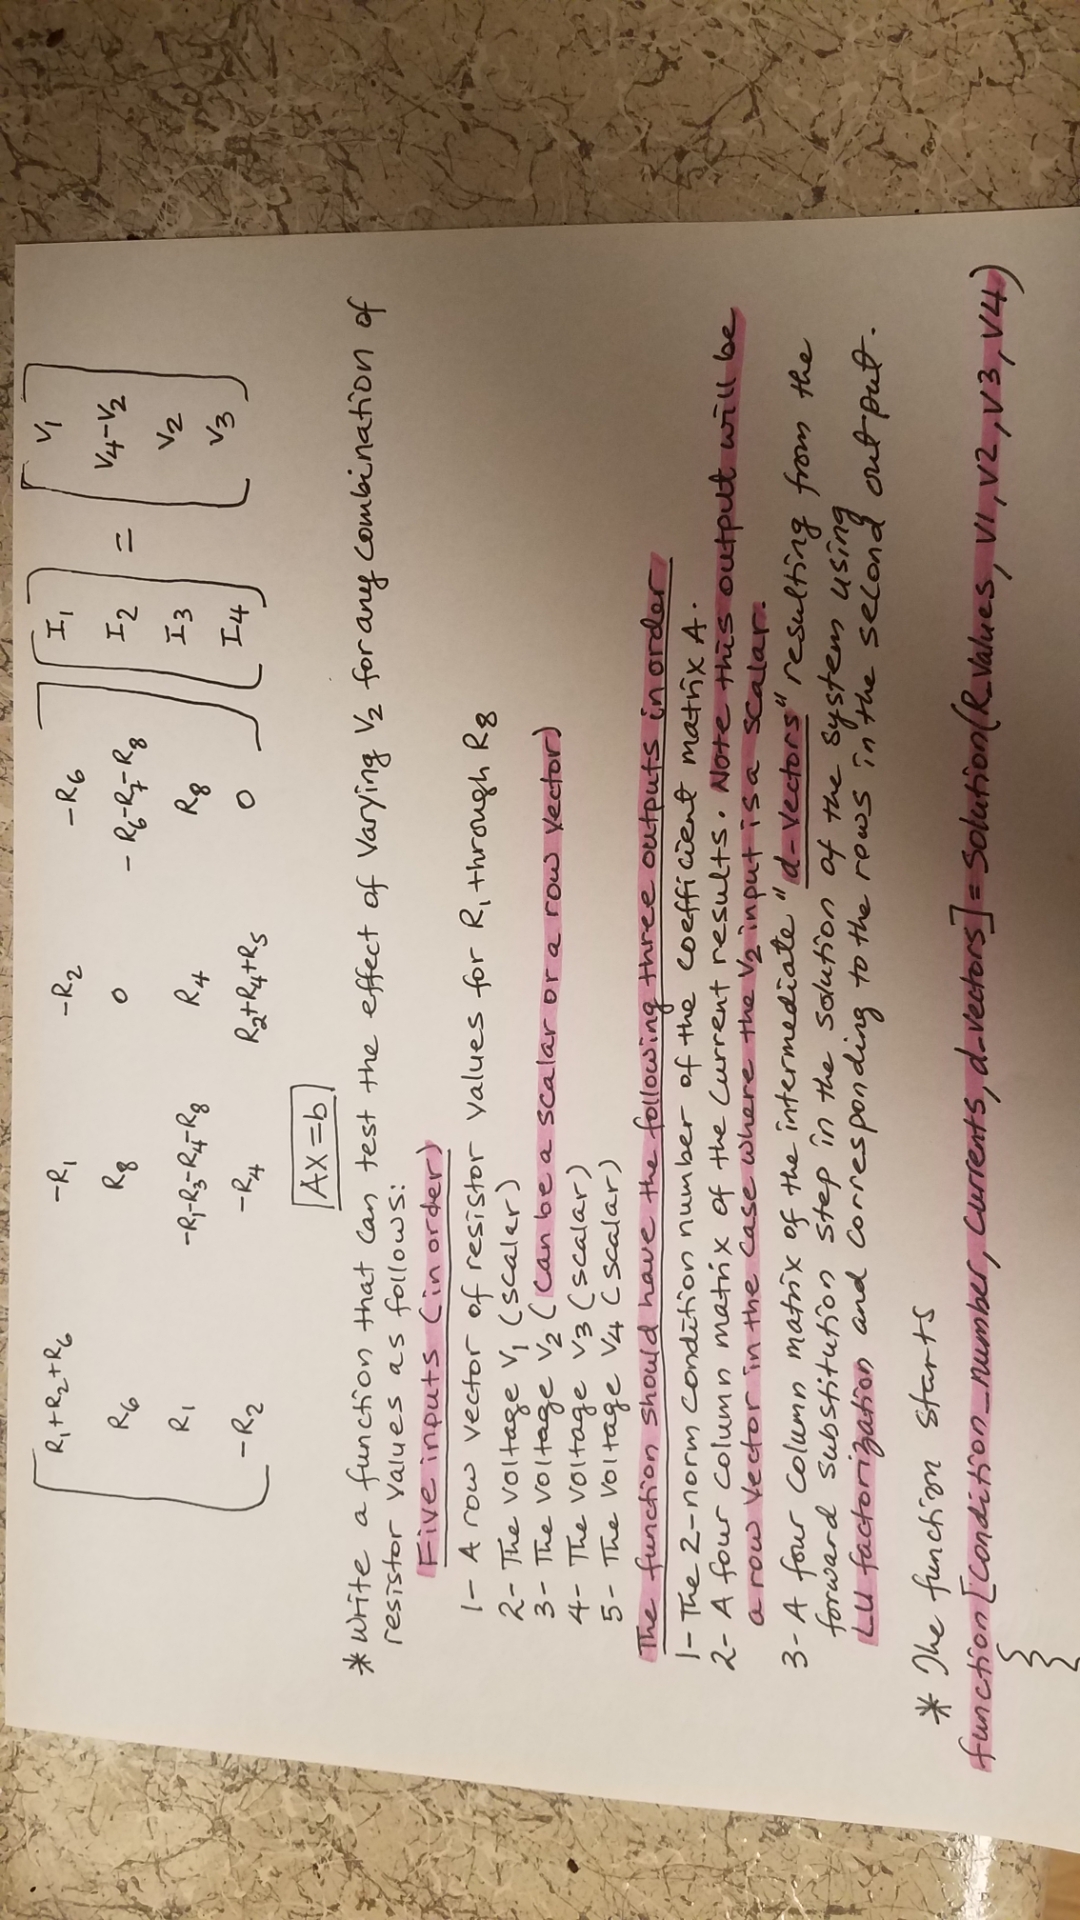 [ R₁+R₂+R₆  -R₁  -R₂  -R₆ ] [ I₁ ] = [ V₁ ]
R₆  R₈  0  -R₆-R₇-R₈  I₂  V₄-V₂
R₁  -R₁-R₃-R₄-R₈  R₄  R₈  I₃  V₂
-R₂  -R₄  R₂+R₄+R₅  0  I₄  V₃
AX=b
* Write a function that can test the effect of varying V₂ for any combination of
resistor values as follows:
Five inputs (in order)
1- A row vector of resistor values for R₁ through R₈
2- The voltage V₁ (scaler)
3- The voltage V₂ (can be a scalar or a row vector)
4- The voltage V3 (scalar)
5- The voltage V4 (scalar)
The function should have the following three outputs in order
1- The 2-norm condition number of the coefficient matrix A.
2- A four column matrix of the current results. Note this output will be
a row vector in the case where the V₂ input is a scalar.
3- A four column matrix of the intermediate "d-vectors" resulting from the
forward substitution step in the solution of the system using
LU factorization and corresponding to the rows in the second output.
* The function starts
function[condition_number, currents, d-vectors]=Solution(R_values, V1, V2, V3, V4)